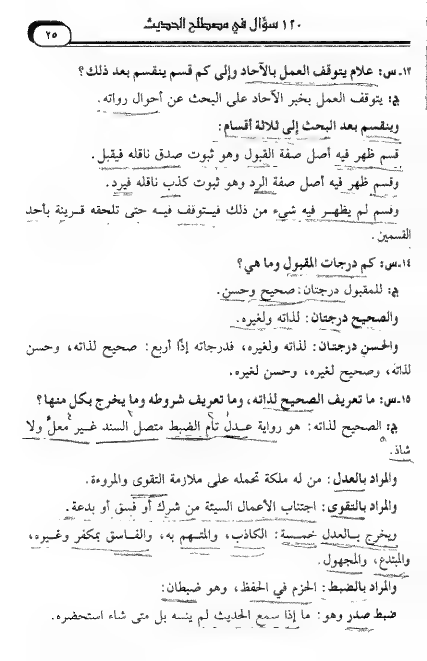 ١٢٠ سؤال في مصطلح الحديث
٢٥
١٣ـ س: علام يتوقف العمل بالآحاد وإلى كم قسم ينقسم بعد ذلك؟
ج: يتوقف العمل بخبر الآحاد على البحث عن أحوال رواته.
وينقسم بعد البحث إلى ثلاثة أقسام:
قسم ظهر فيه أصل صفة القبول وهو ثبوت صدق ناقله فيقبل.
وقسم ظهر فيه أصل صفة الرد وهو ثبوت كذب ناقله فيرد.
وقسم لم يظهر فيه شيء من ذلك فيتوقف فيه حتى تلحقه قرينة بأحد
القسمين.
١٤ـ س: كم درجات المقبول وما هي؟
ج: للمقبول درجتان: صحيح وحسن.
والصحيح درجتان: لذاته ولغيره.
والحسن درجتان: لذاته ولغيره، فدرجاته إذًا أربع: صحيح لذاته، وحسن
لذاته، وصحيح لغيره، وحسن لغيره.
١٥ـ س: ما تعريف الصحيح لذاته، وما تعريف شروطه وما يخرج بكل منها؟
ج: الصحيح لذاته: هو رواية عدل تام الضبط متصل السند غير معلٍّ ولا
شاذ.
والمراد بالعدل: من له ملكة تحمله على ملازمة التقوى والمروءة.
والمراد بالتقوى: اجتناب الأعمال السيئة من شرك أو فسق أو بدعة.
ويخرج بالعدل خمسة: الكاذب، والمتهم به، والفاسق بمكفر وغيره،
والمبتدع، والمجهول.
والمراد بالضبط: الحزم في الحفظ، وهو ضبطان:
ضبط صدر وهو: ما إذا سمع الحديث لم ينسه بل متى شاء استحضره.